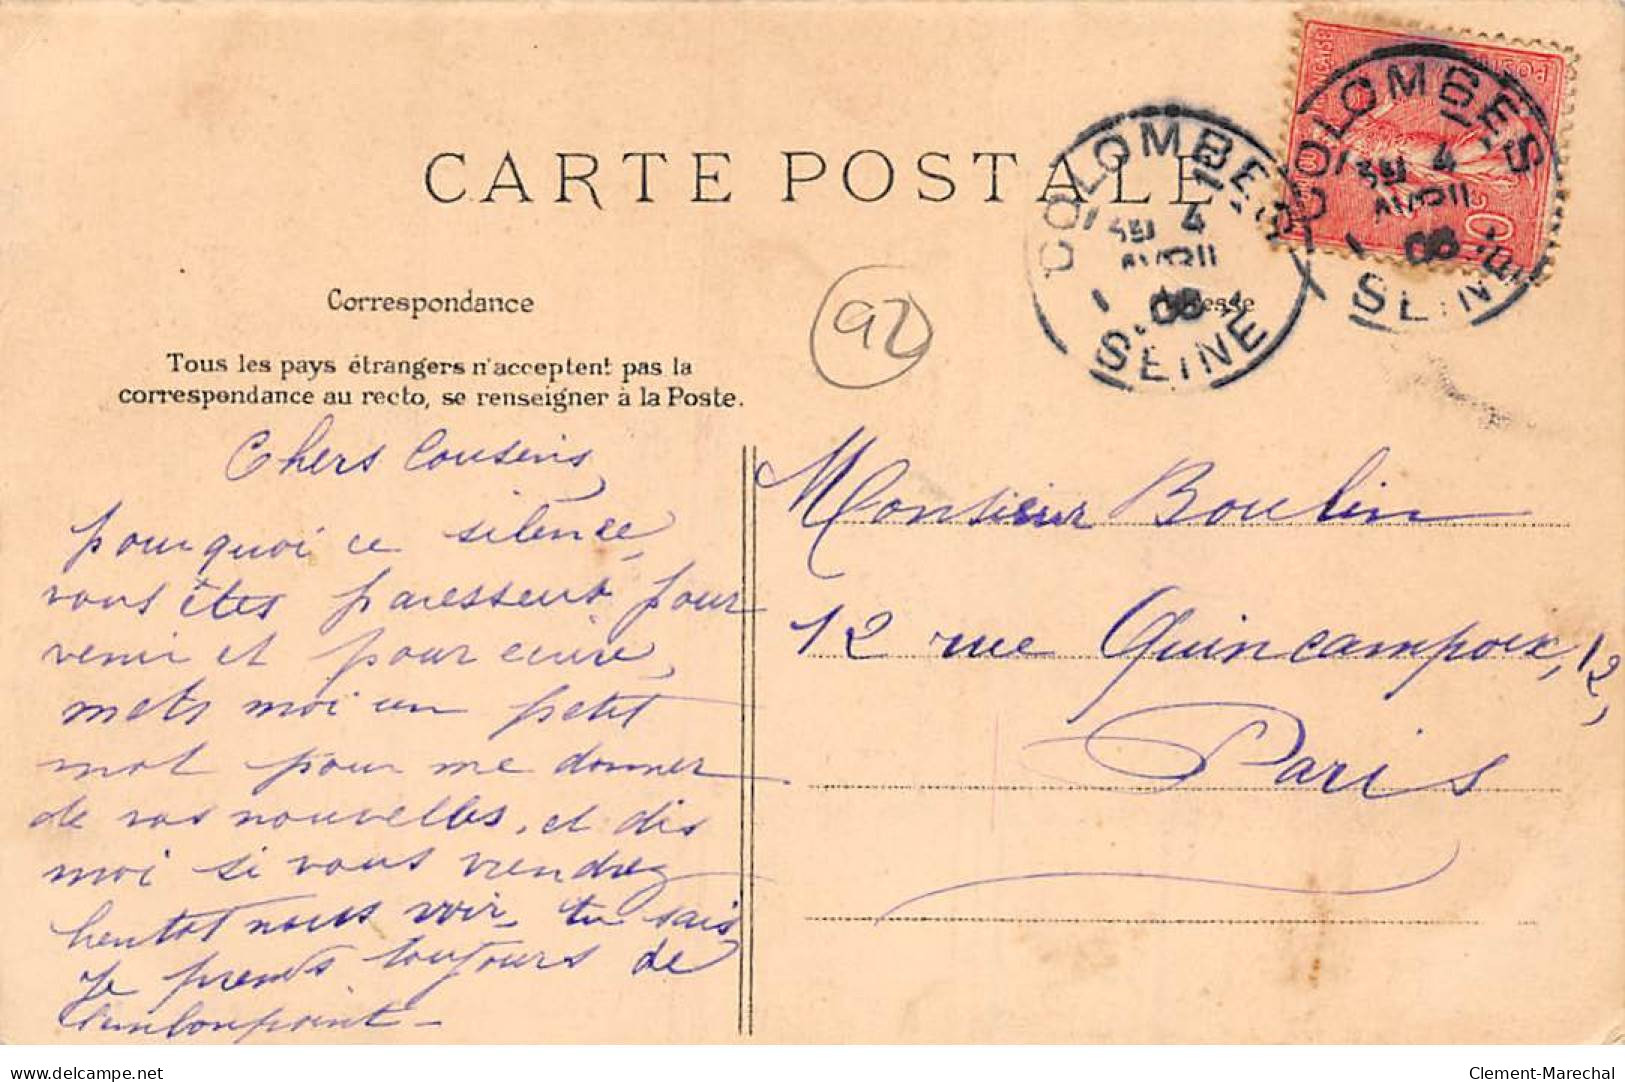 CARTE POSTALE
COLOMBES
4
AVRIL
08
SEINE
COLOMBES
4
AVRIL
08
SEINE
92
Correspondance
Adresse
Tous les pays étrangers n'acceptent pas la
correspondance au recto, se renseigner à la Poste.
Chers Cousins,
pourquoi ce silence,
vous êtes paresseux pour
venir et pour ecrire,
mets moi un petit
mot pour me donner
de vos nouvelles, et dis
moi si vous viendrez
bentot nous voir, tu sais
je prends toujours de
l'embonpoint -
Monsieur Boulin
12 rue Quincampoix, 12,
Paris
delcampe.net
Clement-Marechal